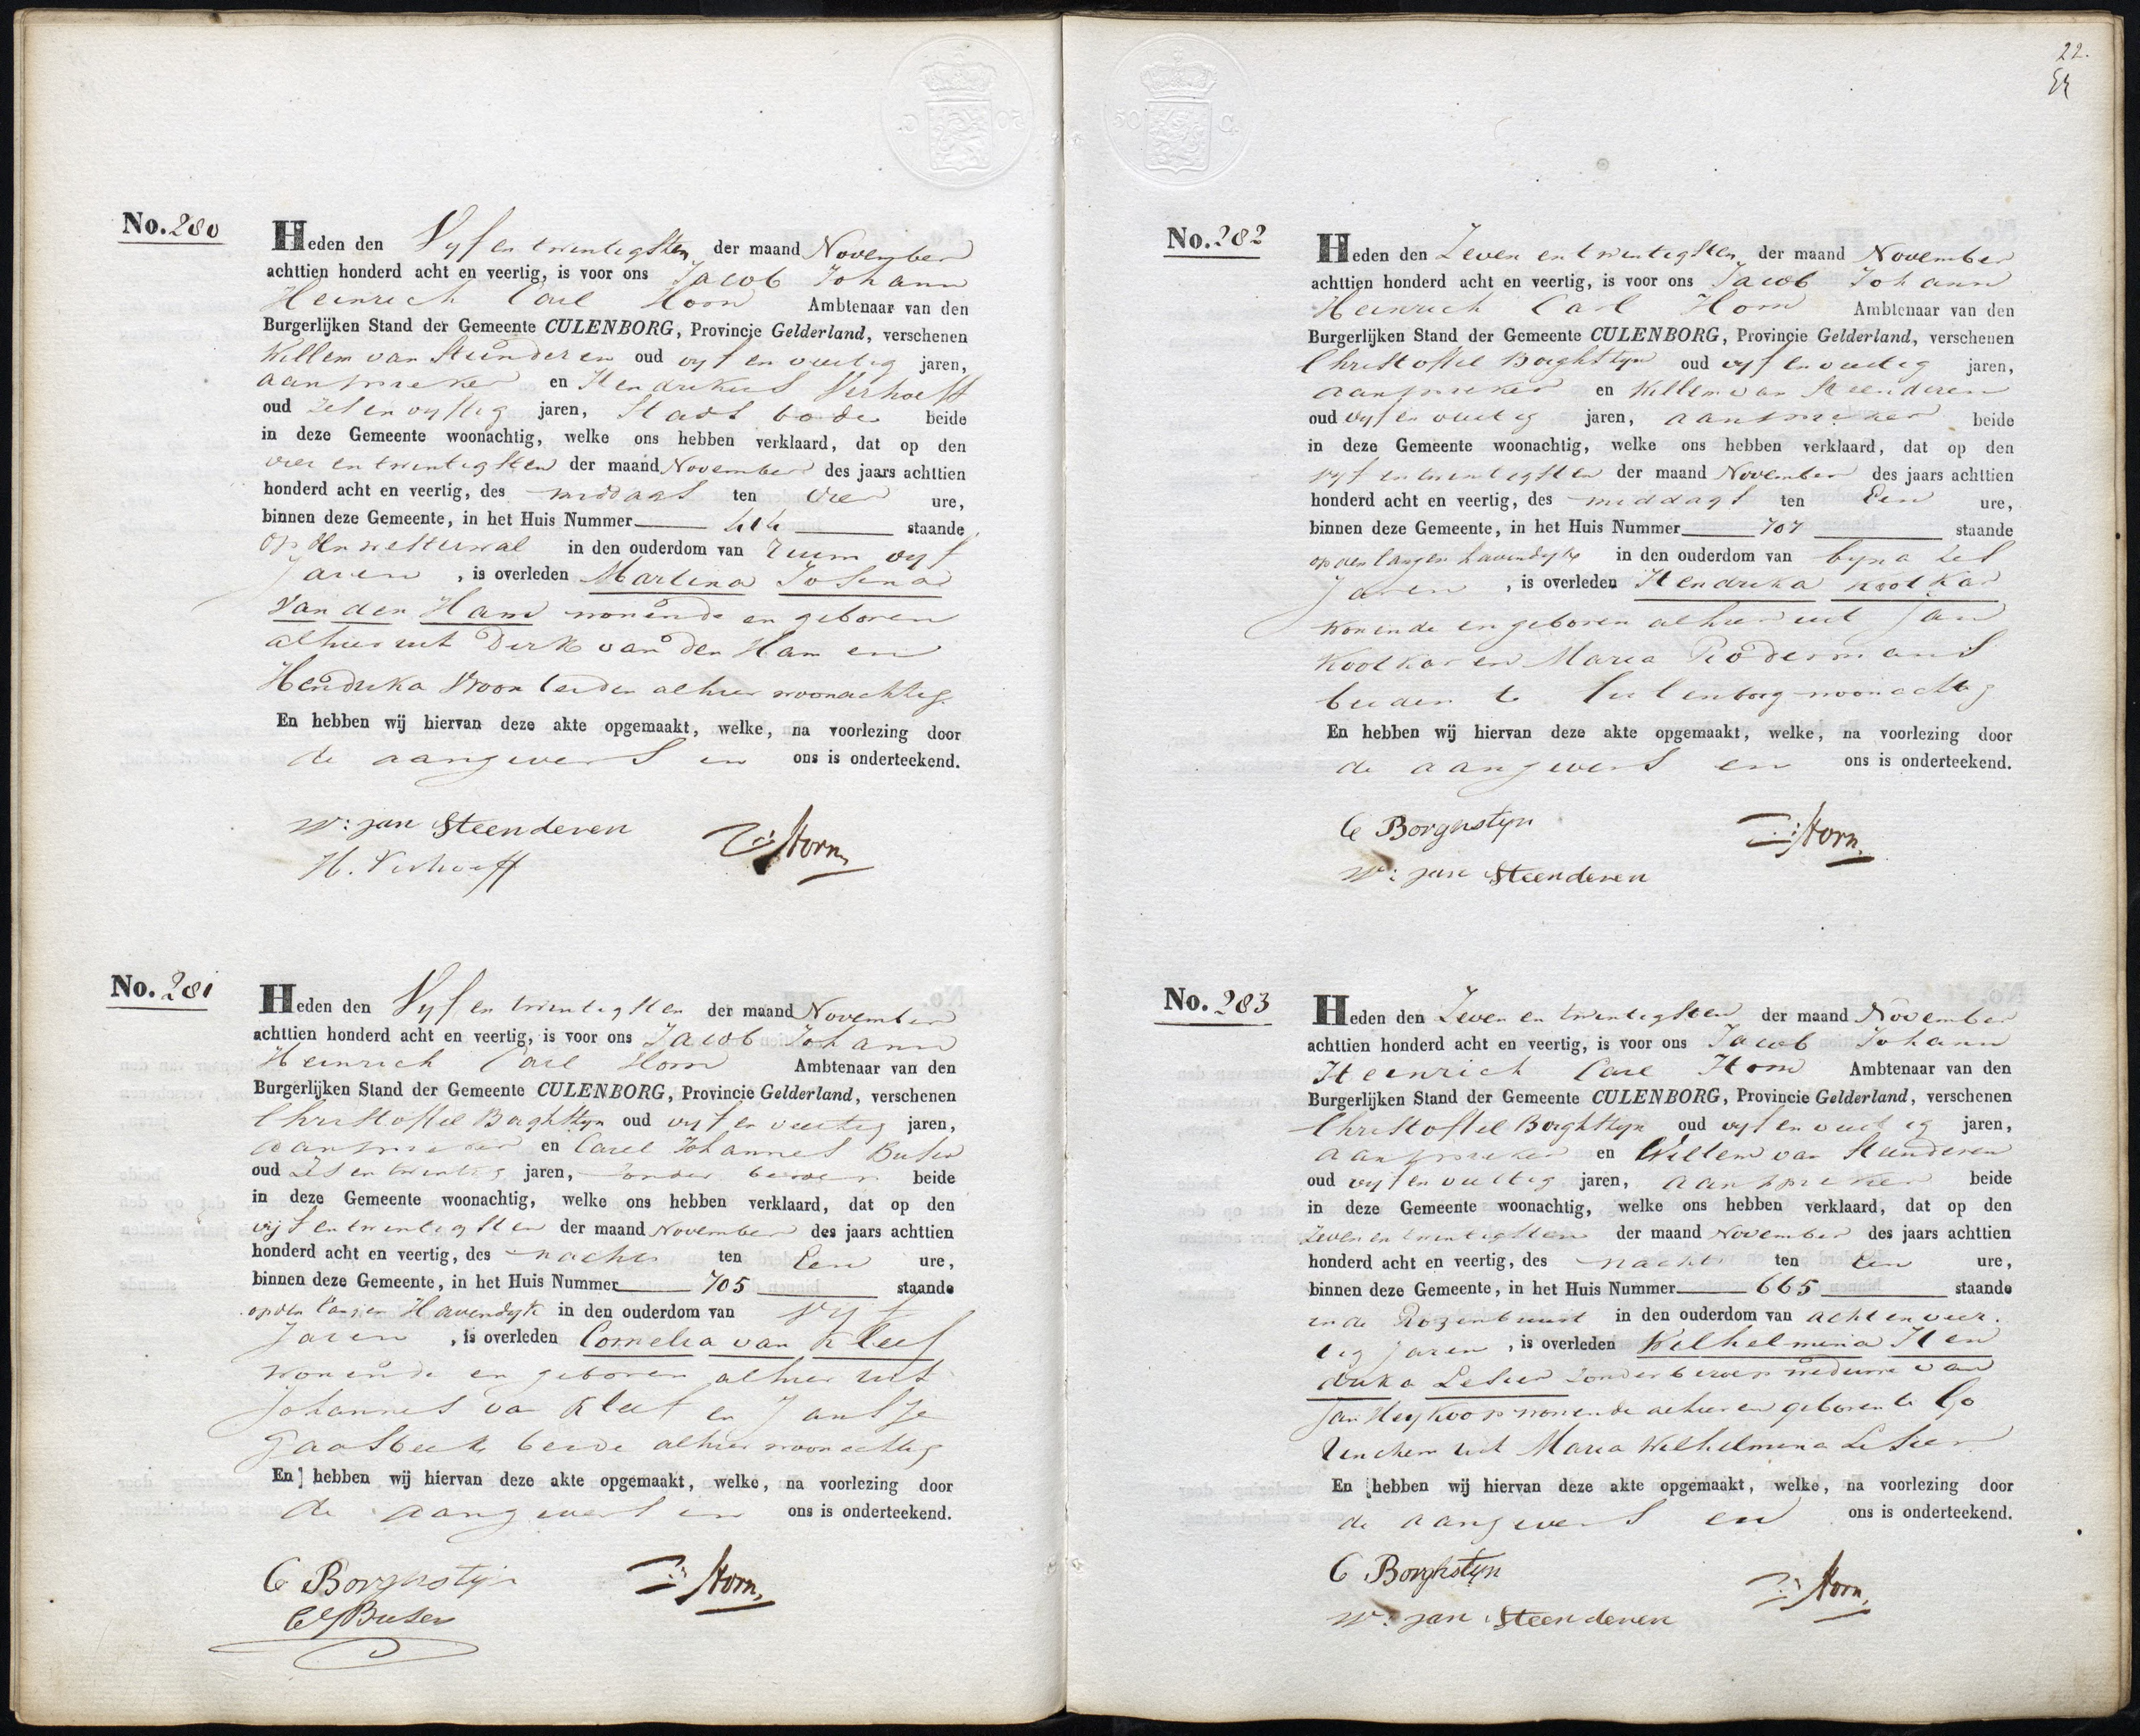 No. 280
Heden den Vyf en twintigsten der maand November
achttien honderd acht en veertig, is voor ons Jacob Johann
Heinrich Carl Horn Ambtenaar van den
Burgerlijken Stand der Gemeente CULENBORG, Provincie Gelderland, verschenen
Willem van Steenderen oud vyf en veertig jaren,
aanspreker en Hendrikus Verhoeff
oud zes en vyftig jaren, Stads bode beide
in deze Gemeente woonachtig, welke ons hebben verklaard, dat op den
vier en twintigsten der maand November des jaars achttien
honderd acht en veertig, des middags ten vier ure,
binnen deze Gemeente, in het Huis Nummer 414 staande
op den westerwal in den ouderdom van ruim vyf
Jaren, is overleden Martina Josina
van den Ham wonende en geboren
alhier uit Dirk van den Ham en
Hendrika Vroon beiden alhier woonachtig.
En hebben wij hiervan deze akte opgemaakt, welke, na voorlezing door
de aangevers en ons is onderteekend.
W: jan Steenderen
Horn
H. Verhoeff
No. 281
Heden den Vyf en twintigsten der maand November
achttien honderd acht en veertig, is voor ons Jacob Johann
Heinrich Carl Horn Ambtenaar van den
Burgerlijken Stand der Gemeente CULENBORG, Provincie Gelderland, verschenen
Christoffel Borghstyn oud vyf en veertig jaren,
aanspreker en Carel Johannes Buser
oud zes en twintig jaren, zonder beroep beide
in deze Gemeente woonachtig, welke ons hebben verklaard, dat op den
vijf en twintigsten der maand November des jaars achttien
honderd acht en veertig, des nachts ten een ure,
binnen deze Gemeente, in het Huis Nummer 705 staande
op den langen Havendyk in den ouderdom van vyf
Jaren, is overleden Cornelia van Kleef
wonende en geboren alhier uit
Johannes van Kleef en Jansje
Gaasbeek beide alhier woonachtig
En hebben wij hiervan deze akte opgemaakt, welke, na voorlezing door
de aangevers en ons is onderteekend.
C Borghstyn
Horn
CJ Buser
22.
No. 282
Heden den Zeven en twintigsten der maand November
achttien honderd acht en veertig, is voor ons Jacob Johann
Heinrich Carl Horn Ambtenaar van den
Burgerlijken Stand der Gemeente CULENBORG, Provincie Gelderland, verschenen
Christoffel Borghstyn oud vyf en veertig jaren,
aanspreker en Willem van Steenderen
oud vyf en veertig jaren, aanspreker beide
in deze Gemeente woonachtig, welke ons hebben verklaard, dat op den
vyf en twintigsten der maand November des jaars achttien
honderd acht en veertig, des middags ten een ure,
binnen deze Gemeente, in het Huis Nummer 707 staande
op den langen havendyk in den ouderdom van byna zes
Jaren, is overleden Hendrika Kootkar
wonende en geboren alhier uit Jan
Kootkar en Maria Rodermans
beiden te Culenborg woonachtig
En hebben wij hiervan deze akte opgemaakt, welke, na voorlezing door
de aangevers en ons is onderteekend.
C Borghstyn
Horn
W: jan Steenderen
No. 283
Heden den Zeven en twintigsten der maand November
achttien honderd acht en veertig, is voor ons Jacob Johann
Heinrich Carl Horn Ambtenaar van den
Burgerlijken Stand der Gemeente CULENBORG, Provincie Gelderland, verschenen
Christoffel Borghstyn oud vyf en veertig jaren,
aanspreker en Willem van Steenderen
oud vyf en veertig jaren, aanspreker beide
in deze Gemeente woonachtig, welke ons hebben verklaard, dat op den
zeven en twintigsten der maand November des jaars achttien
honderd acht en veertig, des nachts ten een ure,
binnen deze Gemeente, in het Huis Nummer 665 staande
in de Rozenbuurt in den ouderdom van acht en veer
tig jaren, is overleden Wilhelmina Hen
drika Lesier zonder beroep weduwe van
Jan Heykoop wonende alhier en geboren te Go
rinchem uit Maria Wilhelmina Lesier
En hebben wij hiervan deze akte opgemaakt, welke, na voorlezing door
de aangevers en ons is onderteekend.
C Borghstyn
Horn
W: jan Steenderen